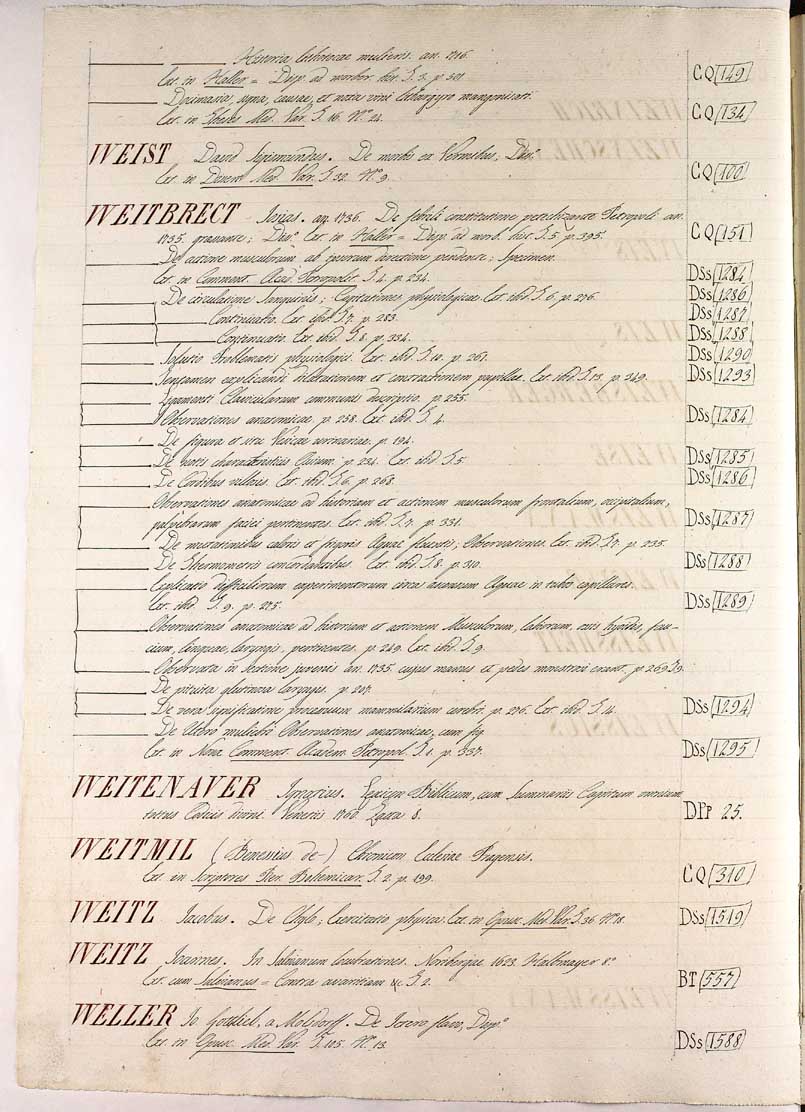 Historia lithotocae mulieris. an. 1716.
Ext. in Haller = Disp. ad morbor. hist. T. 3. p. 501 CQ 149
Docimasia, signa, causae, et noxa vini lithargyro mangonisati.
Ext. in Thesis Med. Var. T. 16. N.º 24. CQ 134
WEIST David Sigismundus. De morbis ex Vermibus; Diss.º
Ext. in Med. Var. T. 32. N.º 9. CQ 100
WEITBRECT Josias. an. 1736. De febrili constitutione petechizante Petropoli an.
1735. grassante; Diss.º Ext. in Haller = Disp. ad morb. hist. T. 5. p. 395. CQ 151
De actione musculorum ab ipsorum directione pendente; Specimen.
Ext. in Comment. Acad. Petropolit. T. 4. p. 234. DSs 1284
De circulatione Sanguinis; Cogitationes physiologicae. Ext. ibid. T. 6. p. 276. DSs 1286
Continuatio. Ext. ibid. T. 7. p. 283. DSs 1287
Continuatio. Ext. ibid. T. 8. p. 334. DSs 1288
Solutio Problematis physiologici. Ext. ibid. T. 10. p. 261. DSs 1290
Tentamen explicandi dilatationem et contractionem pupillae. Ext. ibid. T. 13. p. 349. DSs 1293
Ligamenti Clavicularum communis descriptio. p. 255.
Observationes anatomicae. p. 258. Ext. ibid. T. 4. DSs 1284
De figura et situ Vesicae urinariae. p. 194.
De notis characteristicis p. 234. Ext. ibid. T. 5. DSs 1285
De Cordibus villosis. Ext. ibid. T. 6. p. 268. DSs 1286
Observationes anatomicae ad historiam et actionem musculorum frontalium, occipitalium,
palpebrarum faciei pertinentes. Ext. ibid. T. 7. p. 331. DSs 1287
De caloris et frigoris Aquae fluentis; Observationes. Ext. ibid. T. 7. p. 235.
De Thermometris concordantibus. Ext. ibid. T. 8. p. 310. DSs 1288
Explicatio difficiliorum experimentorum circa ascensum Aquae in tubis capillares.
Ext. ibid. T. 9. p. 275. DSs 1289
Observationes anatomicae ad historiam et actionem Musculorum, labiorum, ossis hyoidis, fau-
cium, linguae, laryngis, pertinentes. p. 249. Ext. ibid. T. 9.
Observata in sectione juvenis an. 1735. cujus manus et pedes monstrosi erant. p. 269. T. 9.
De pituita glutinosa laryngis. p. 207.
De vera significatione processuum mammillarium cerebri. p. 276. Ext. ibid. T. 14. DSs 1294
De Utero muliebri Observationes anatomicae, cum fig.
Ext. in Nova Comment. Academ. Petropol. T. 1. p. 337. DSs 1295
WEITENAVER Ignatius. Lexicon Biblicum, cum Summariis Capitum omnium
totius Codicis divini. Venetiis 1760. Zatta 8. DPp 25.
WEITMIL (Benessius de-) Chronicon Ecclesiae Pragensis.
Ext. in Scriptores Rer. Bohemicar. T. 2. p. 199. CQ 310
WEITZ Jacobus. De Chylo; Exercitatio physica. Ext. in Opusc. Med. Var. T. 36. N.º 18. DSs 1519
WEITZ Joannes. In Salvianum lucubrationes. Noribergae 1623. Halbmayer 8.º
Ext. cum Salvianus = Contra avaritiam &c. T. 2. BT 557
WELLER Jo. Gottlieb, a Molsdorff. De Ictero flavo, Disp.º
Ext. in Opusc. Med. Var. T. 105. N.º 13. DSs 1588